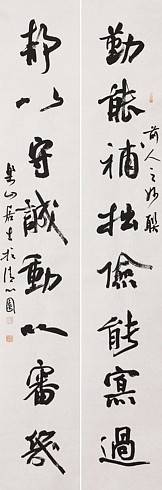 勤能補拙儉能寡過
前人之妙聯
靜以守誠動以審幾
樂山居士於清心園